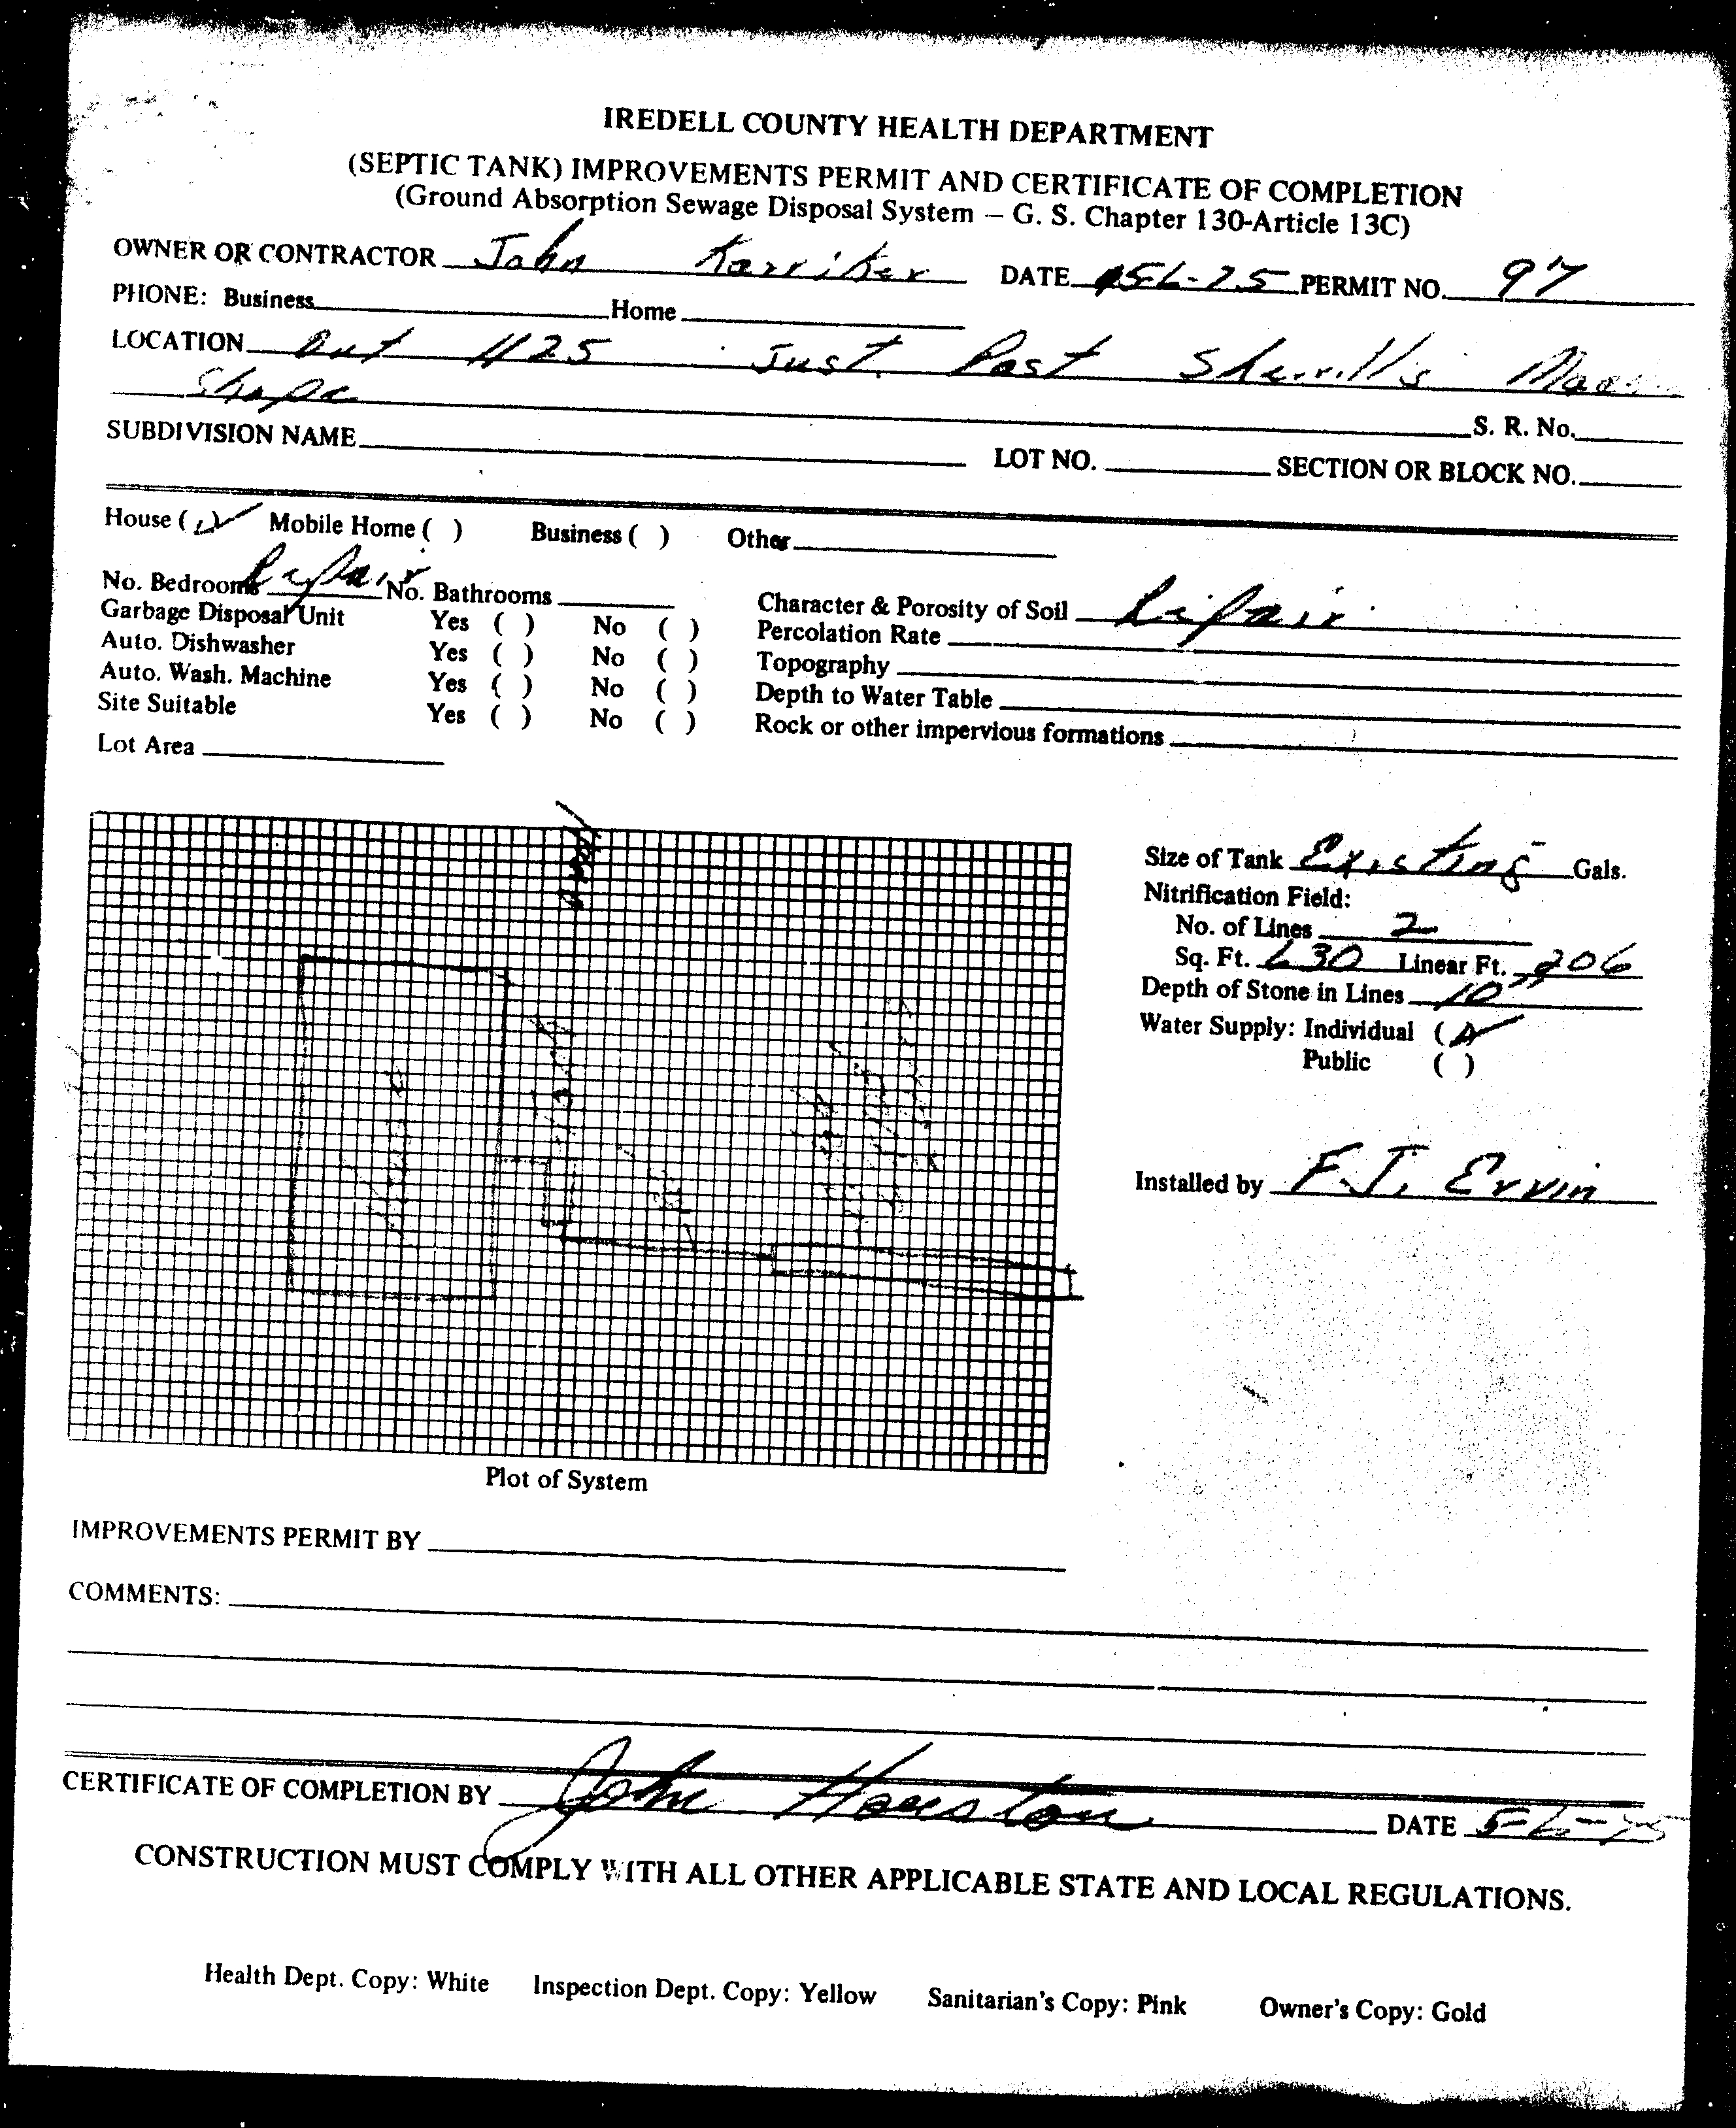 IREDELL COUNTY HEALTH DEPARTMENT
(SEPTIC TANK) IMPROVEMENTS PERMIT AND CERTIFICATE OF COMPLETION
(Ground Absorption Sewage Disposal System — G. S. Chapter 130-Article 13C)
OWNER OR CONTRACTOR John Karriker DATE PERMIT NO. 97
PHONE: Business Home
LOCATION Out 1125 Just Past Sherrill's
Shope
S. R. No.
SUBDIVISION NAME LOT NO. SECTION OR BLOCK NO.
House (✓) Mobile Home ( ) Business ( ) Other
No. Bedrooms Repair No. Bathrooms Character & Porosity of Soil Repair
Garbage Disposal Unit Yes ( ) No ( ) Percolation Rate
Auto. Dishwasher Yes ( ) No ( ) Topography
Auto. Wash. Machine Yes ( ) No ( ) Depth to Water Table
Site Suitable Yes ( ) No ( ) Rock or other impervious formations
Lot Area
Size of Tank Existing Gals.
Nitrification Field:
No. of Lines 2
Sq. Ft. 630 Linear Ft. 206
Depth of Stone in Lines 10"
Water Supply: Individual (✓)
Public ( )
Installed by F.J. Ervin
Plot of System
IMPROVEMENTS PERMIT BY
COMMENTS:
CERTIFICATE OF COMPLETION BY John Houston DATE 5-6-75
CONSTRUCTION MUST COMPLY WITH ALL OTHER APPLICABLE STATE AND LOCAL REGULATIONS.
Health Dept. Copy: White Inspection Dept. Copy: Yellow Sanitarian's Copy: Pink Owner's Copy: Gold